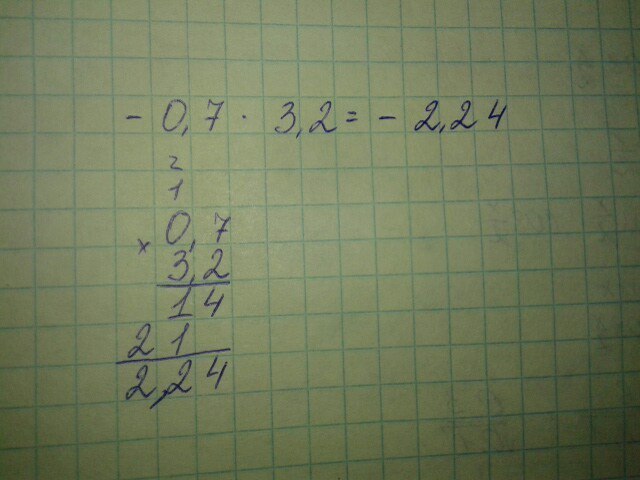 - 0,7 · 3,2 = - 2,24
2
1
× 0,7
3,2
14
21
2,24